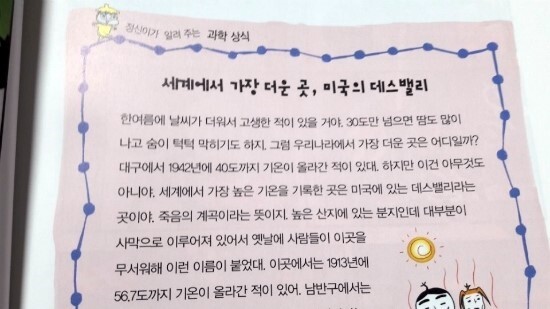 정신이가 알려 주는 과학 상식
세계에서 가장 더운 곳, 미국의 데스밸리
한여름에 날씨가 더워서 고생한 적이 있을 거야. 30도만 넘으면 땀도 많이
나고 숨이 턱턱 막히기도 하지. 그럼 우리나라에서 가장 더운 곳은 어디일까?
대구에서 1942년에 40도까지 기온이 올라간 적이 있대. 하지만 이건 아무것도
아니야. 세계에서 가장 높은 기온을 기록한 곳은 미국에 있는 데스밸리라는
곳이야. 죽음의 계곡이라는 뜻이지. 높은 산지에 있는 분지인데 대부분이
사막으로 이루어져 있어서 옛날에 사람들이 이곳을
무서워해 이런 이름이 붙었대. 이곳에서는 1913년에
56.7도까지 기온이 올라간 적이 있어. 남반구에서는